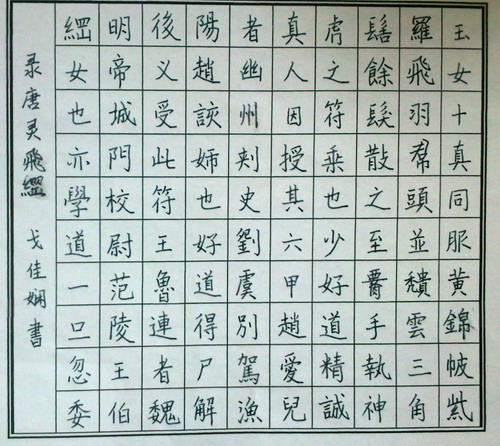 玉女十真同服黃錦帔紫
羅飛羽帬頭並穨雲三角
髻餘髮散之至手執神
虎之符乘也少好道精誠
真人因授其六甲趙愛兒
者幽州刾史劉虞別駕漁
陽趙該姊也好道得尸解
後又受此符王魯連者魏
明帝城門校尉范陵王伯
綱女也亦學道一旦忽委
录唐灵飛經 戈佳娴書